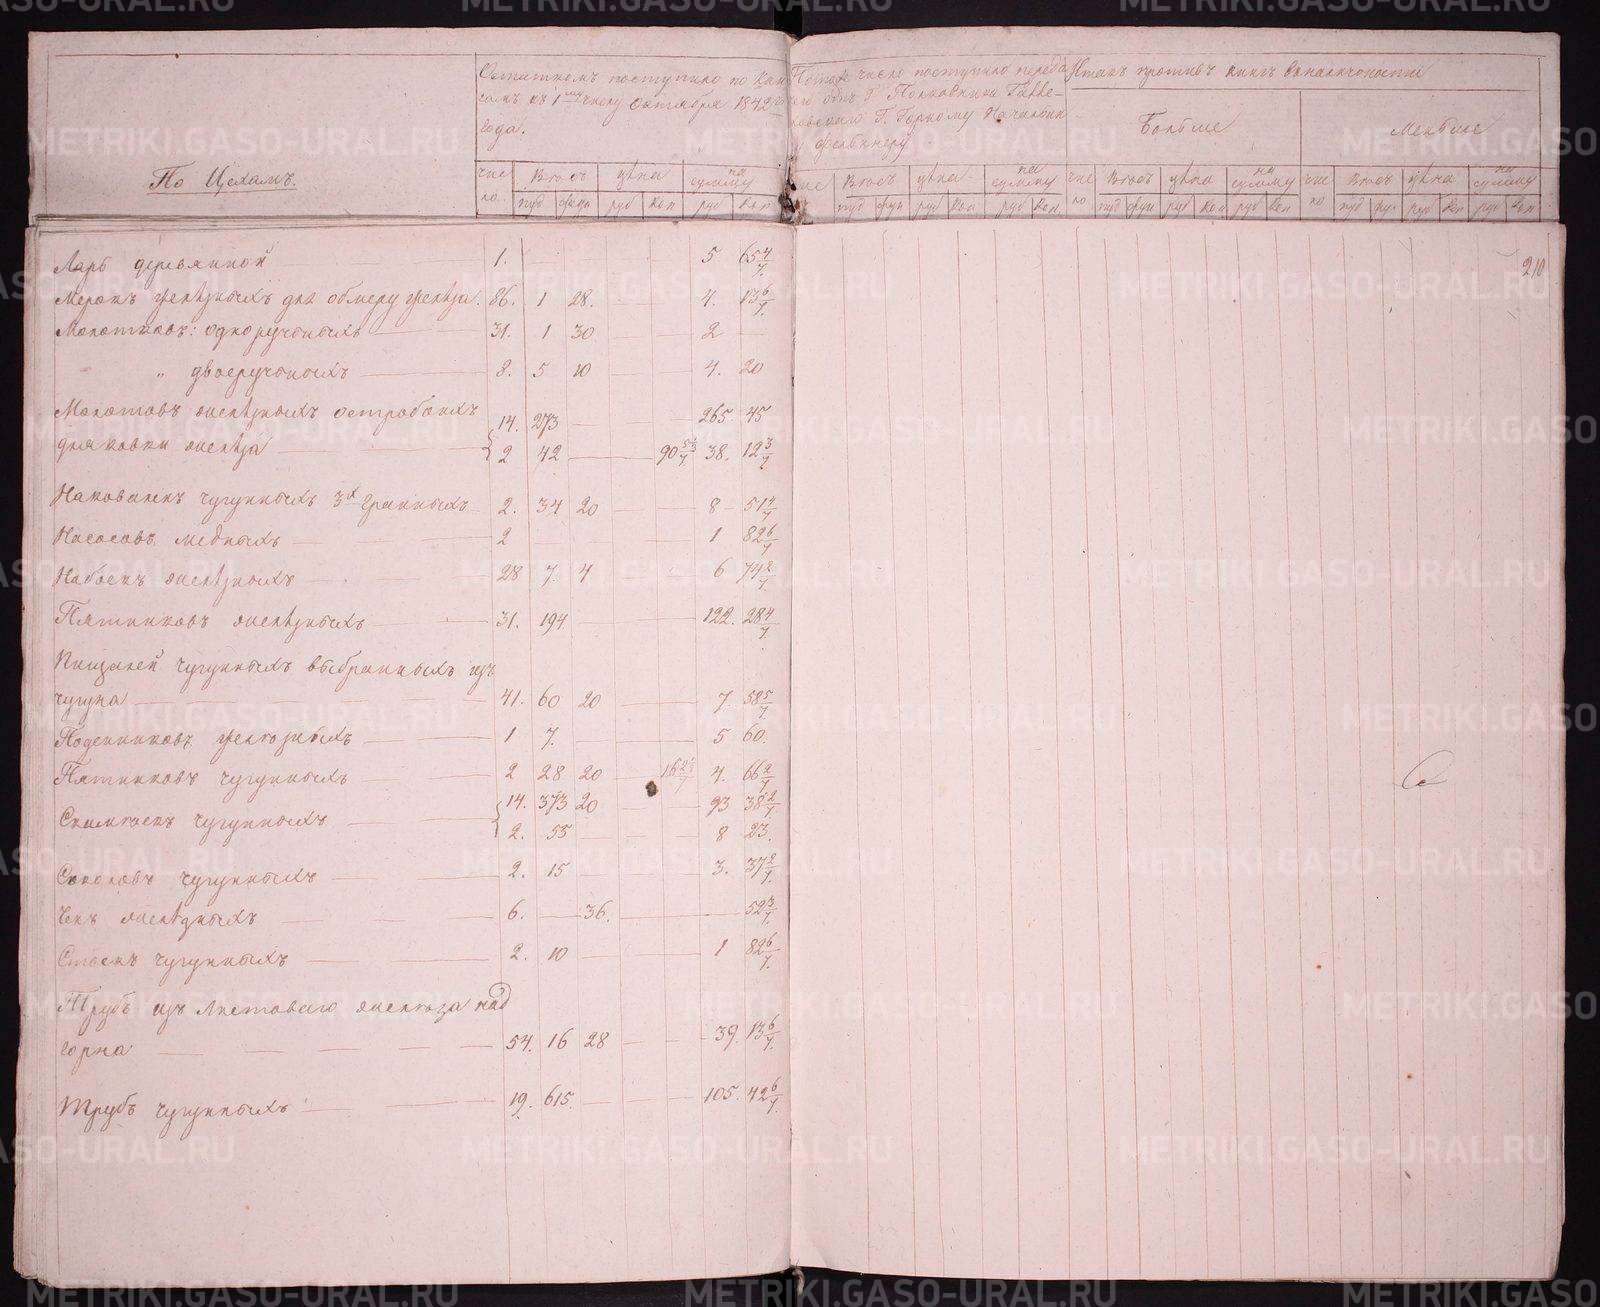 По Цехамъ.
Остаткомъ поступило по кни
гамъ къ 1му числу октября 1842
года.
число поступило
Г. Полковника
Г. Горному Начальни
Фелькнеру
Итакъ противъ книгъ въ наличности
Больше
Меньше
чис ло Весъ цѣна на сумму
пуд фун руб коп руб коп
Весъ цѣна на сумму
пуд фун руб коп руб коп
чис ло Весъ цѣна на сумму
пуд фун руб коп руб коп
чис ло Весъ цѣна на сумму
пуд руб коп руб коп
210
Ларь деревянной 1. 5 65 4/7
Мерокъ желѣзныхъ для обмеру желѣза. 86. 1 28. 4. 13 6/7
Молотковъ: одноручныхъ 31. 1 30 2
" двоеручныхъ 8. 5 10 4. 20
Молотовъ желѣзныхъ 14. 273 265. 45
для ковки желѣза 2 42 90 38. 12 3/7
Наковаленъ чугунныхъ 3х гранныхъ 2. 34 20 8 51 4/7
Насосовъ медныхъ 2 1 82 6/7
Набоекъ желѣзныхъ 28 7. 4 6 74 2/7
Пятниковъ желѣзныхъ 31. 194 122. 28 4/7
чугунныхъ выбранныхъ изъ
чугуна 41. 60 20 7. 58 5/7
1 7. 5 60.
Пятниковъ чугунныхъ 2 28 20 16 4. 66 2/7
чугунныхъ 14. 373 20 93 38 2/7
2. 55 8 23.
Соколовъ чугунныхъ 2. 15 3. 37 2/7
Чекъ желѣзныхъ 6. 36. 52 3/7
Стоекъ чугунныхъ 2. 10 1 82 6/7
Трубъ изъ листоваго желѣза над
горна 54. 16 28 39. 13 6/7
Трубъ чугунныхъ 19. 615. 105. 42 6/7
METRIKI.GASO-URAL.RU